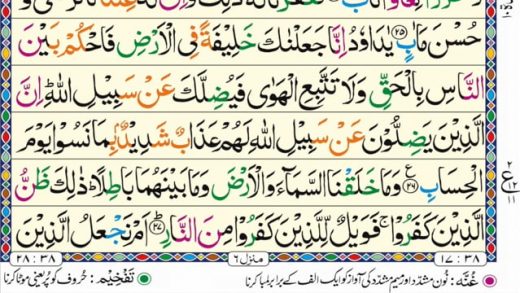 حُسْنَ مَاٰبٍ ﴿۲۵﴾ يٰدَاوٗدُ اِنَّا جَعَلْنٰكَ خَلِيْفَةً فِي الْاَرْضِ فَاحْكُمْ بَيْنَ
النَّاسِ بِالْحَقِّ وَلَا تَتَّبِعِ الْهَوٰى فَيُضِلَّكَ عَنْ سَبِيْلِ اللّٰهِ ؕ اِنَّ
الَّذِيْنَ يَضِلُّوْنَ عَنْ سَبِيْلِ اللّٰهِ لَهُمْ عَذَابٌ شَدِيْدٌۢ بِمَا نَسُوْا يَوْمَ
الْحِسَابِ ﴿۲۶﴾ ع وَمَا خَلَقْنَا السَّمَآءَ وَالْاَرْضَ وَمَا بَيْنَهُمَا بَاطِلًا ؕ ذٰلِكَ ظَنُّ
الَّذِيْنَ كَفَرُوْا ۚ فَوَيْلٌ لِّلَّذِيْنَ كَفَرُوْا مِنَ النَّارِ ؕ ﴿۲۷﴾ اَمْ نَجْعَلُ الَّذِيْنَ
۲۸ : ۳۸ منزل ۶ ۱۷ : ۳۸
غُنَّه: نُون مشدّد اور میم مشدّد کی آواز کو ایک الف کے برابر لمبا کرنا تَفْخِيْم: حُروف کو پُر یعنی موٹا کرنا